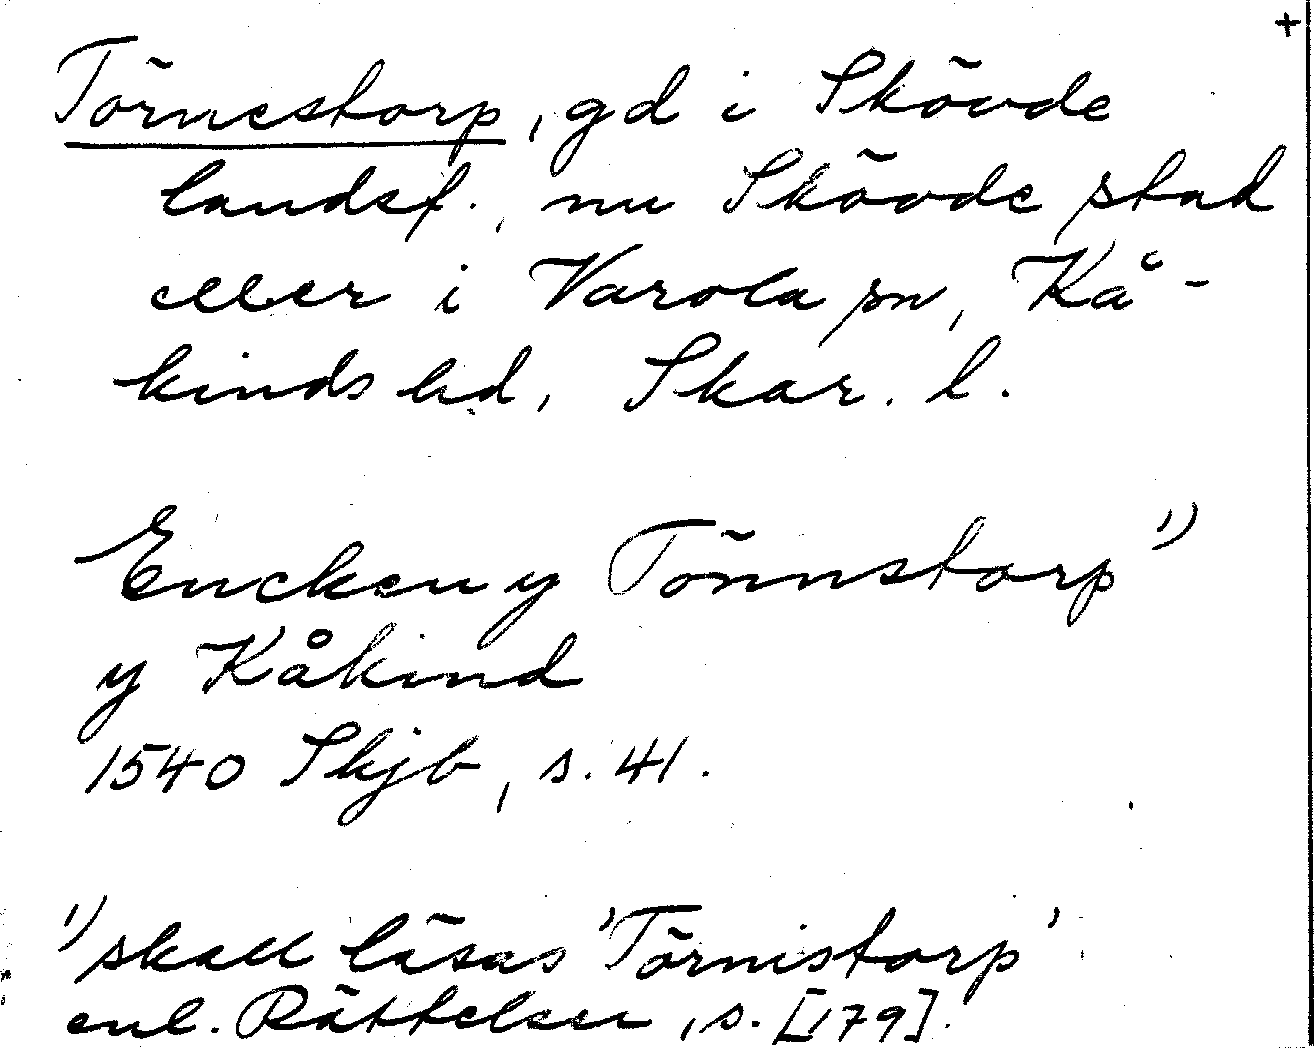 +
Törnestorp, gd i Skövde
landsf., nu Skövde stad
eller i Varola sn, Kå-
kinds hd, Skar. l.
Encken y Tönnstorp 1)
y Kåkind
1540 Skjb, s. 41.
1) skall läsas 'Törnistorp'
enl. Rättelser, s. [179].